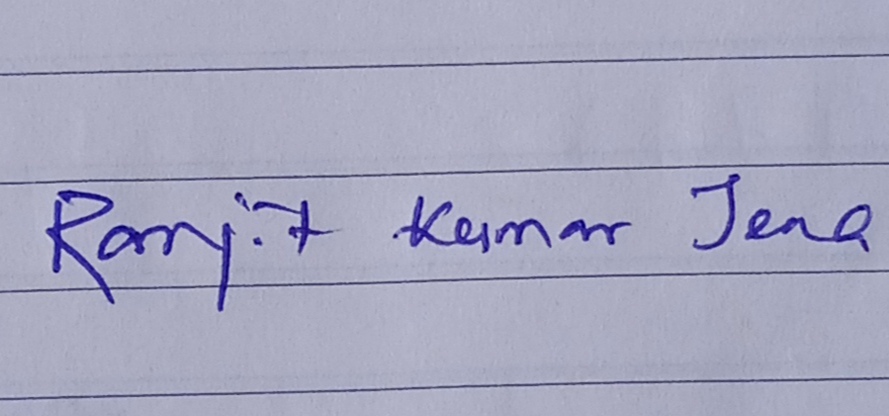 Ranjit Kumar Jena